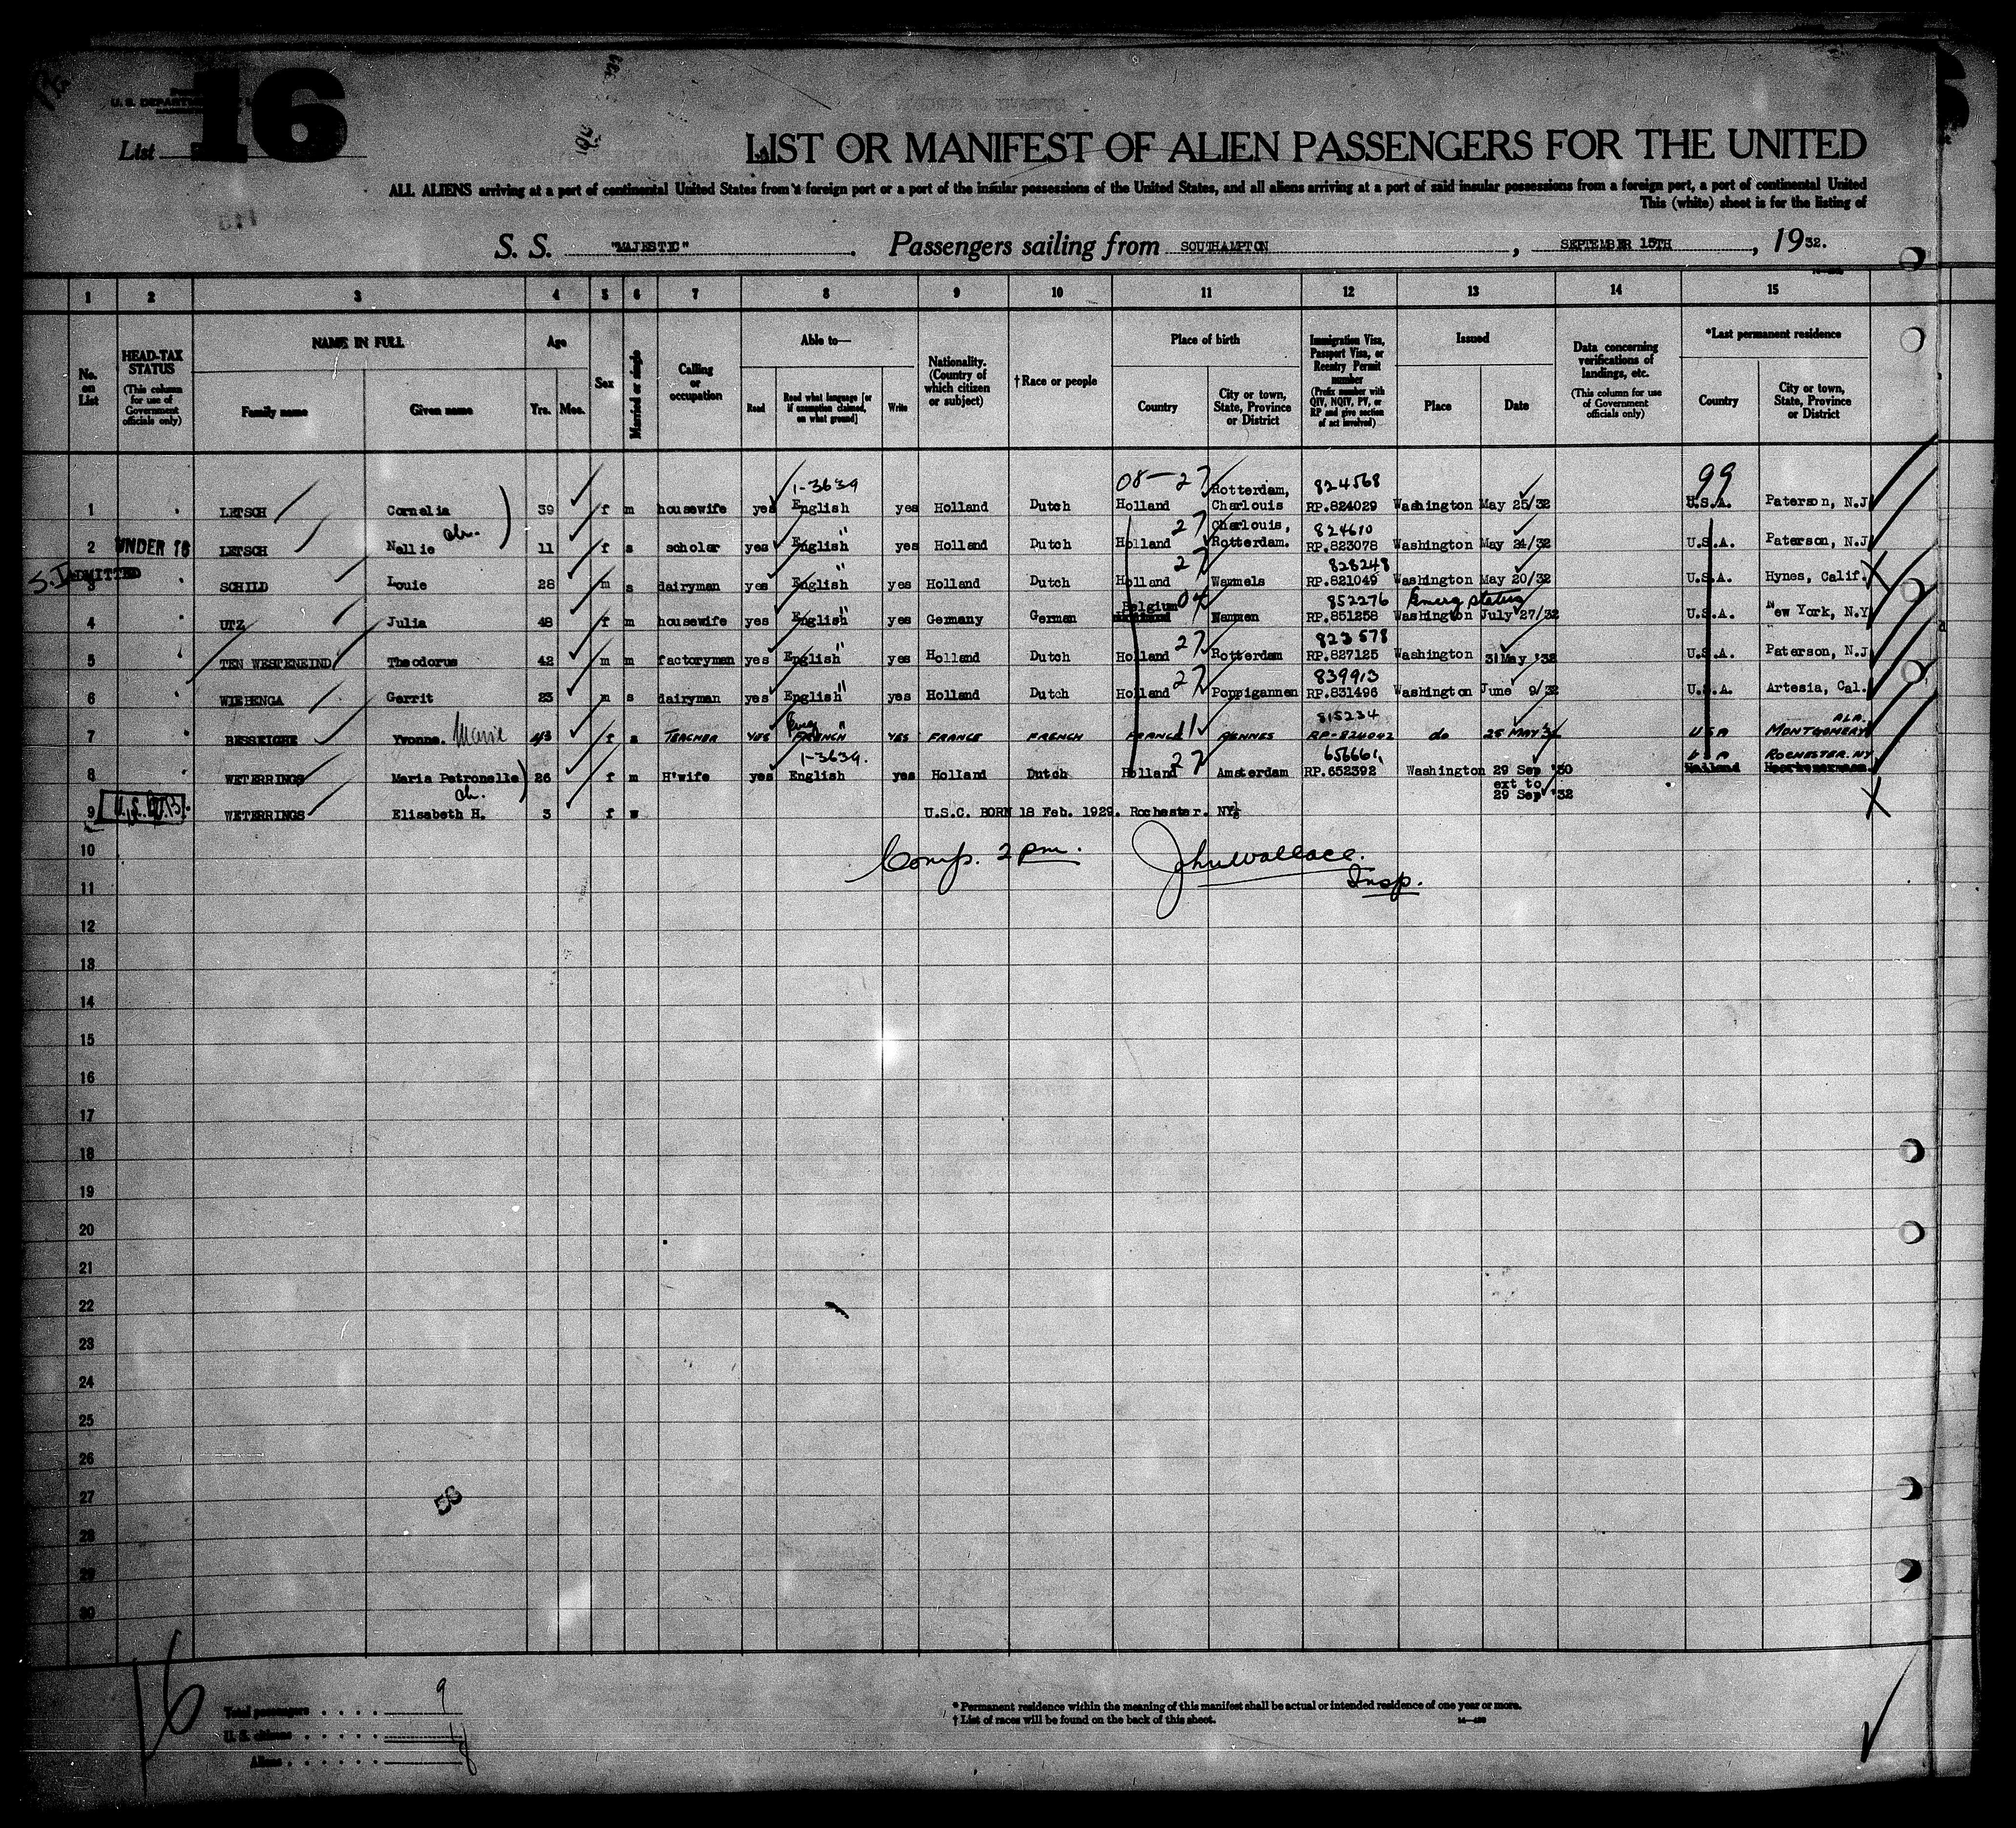 16
List
LIST OR MANIFEST OF ALIEN PASSENGERS FOR THE UNITED
ALL ALIENS arriving at a port of continental United States from a foreign port or a port of the insular possessions of the United States, and all aliens arriving at a port of said insular possessions from a foreign port, a port of continental United
This (white) sheet is for the listing of
S. S. "MAJESTIC". Passengers sailing from SOUTHAMPTON, SEPTEMBER 15TH, 1932.
1 2 3 4 5 6 7 8 9 10 11 12 13 14 15
No. on List
HEAD-TAX STATUS (This column for use of Government officials only)
NAME IN FULL
Family name
Given name
Age
Yrs. Mos.
Sex
Married or single
Calling or occupation
Able to—
Read
Read what language [or if exemption claimed, on what ground]
Write
Nationality. (Country of which citizen or subject)
†Race or people
Place of birth
Country
City or town, State, Province or District
Immigration Visa, Passport Visa, or Reentry Permit number (Prefix number with QIV, NQIV, PV, or RP and give section of act involved)
Issued
Place
Date
Data concerning verifications of landings, etc. (This column for use of Government officials only)
*Last permanent residence
Country
City or town, State, Province or District
1-3639 08-27 Rotterdam, 824568 99
1 LETSCH Cornelia 39 f m housewife yes English yes Holland Dutch Holland Charlouis RP.824029 Washington May 25/32 U.S.A. Paterson, N.J
ch. " 27 Charlouis, 824610
2 UNDER 16 LETSCH Nellie 11 f s scholar yes English yes Holland Dutch Holland Rotterdam. RP.823078 Washington May 24/32 U.S.A. Paterson, N.J
S.I. ADMITTED " 27 828248
3 SCHILD Louie 28 m s dairyman yes English yes Holland Dutch Holland Warmels RP.821049 Washington May 20/32 U.S.A. Hynes, Calif. X
" Belgium 04 852276
4 UTZ Julia 48 f m housewife yes English yes Germany German RP.851258 Washington July 27/32 U.S.A. New York, N.Y
" 27 823578
5 TEN WESTENEIND Theodorus 42 m m factoryman yes English yes Holland Dutch Holland Rotterdam RP.827125 Washington 31 May '32 U.S.A. Paterson, N.J
" 27 839913
6 WIEBENGA Gerrit 23 m s dairyman yes English yes Holland Dutch Holland Poppigannen RP.831496 Washington June 9/32 U.S.A. Artesia, Cal.
Eng " 11 815234 ALA.
7 Yvonne. Marie 43 f s TEACHER YES FRENCH YES FRANCE FRENCH FRANCE RENNES RP-824042 do 25 MAY 32 USA MONTGOMERY
1-3639. 27 656661 USA ROCHESTER. NY
8 WETERRINGS Maria Petronella 26 f m H'wife yes English yes Holland Dutch Holland Amsterdam RP.652392 Washington 29 Sep '30
ch. ext to
29 Sep '32
9 WETERRINGS Elisabeth H. 3 f s U.S.C. BORN 18 Feb. 1929. Rochester. NY X
10 Comp. 2 pm. John Wallace.
11 Insp.
12
13
14
15
16
17
18
19
20
21
22
23
24
25
26
27
28
29
30
16
Total passengers 9
U. S. citizens 1
Aliens 8
* Permanent residence within the meaning of this manifest shall be actual or intended residence of one year or more.
† List of races will be found on the back of this sheet.